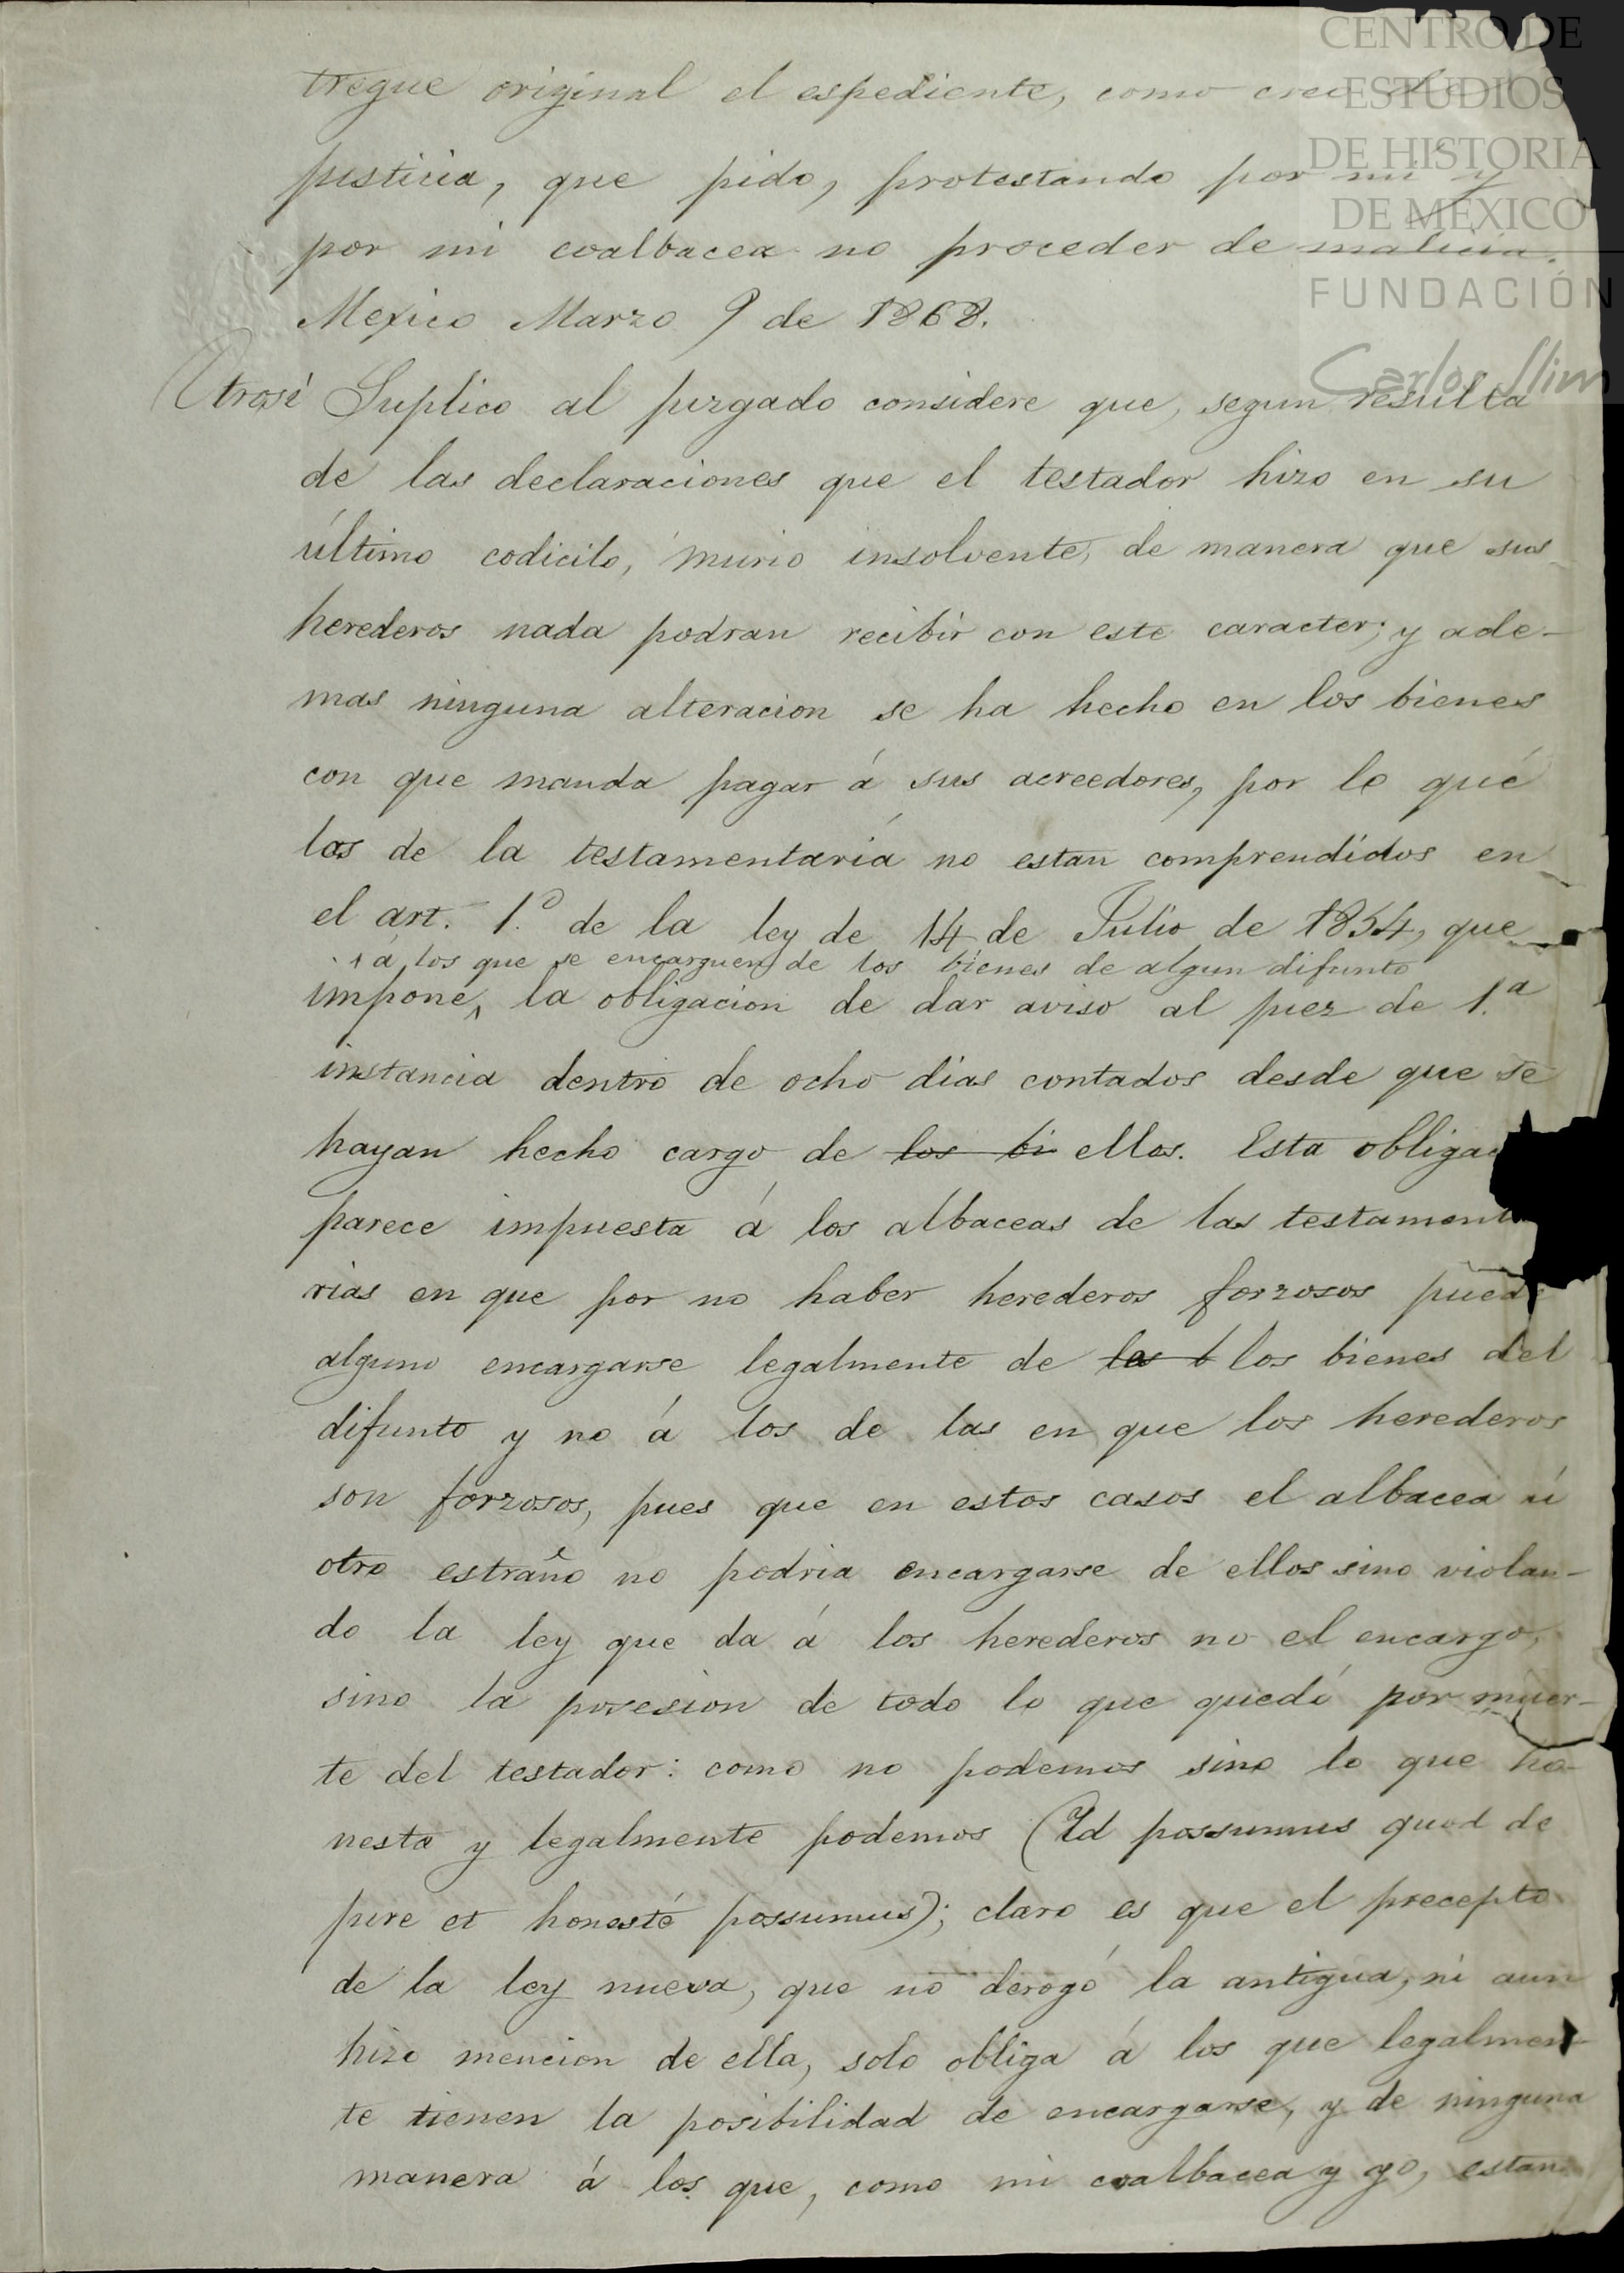 tregue original el espediente, como creo
justicia, que pido, protestando por mi y
por mi coalbacea no proceder de malicia.
Mexico Marzo 9 de 1868.
Otrosi Suplico al juzgado considere que, segun resulta
de las declaraciones que el testador hizo en su
último codicilo, murio insolvente, de manera que sus
herederos nada podran recibir con este caracter; y ade-
mas ninguna alteracion se ha hecho en los bienes
con que manda pagar á sus acreedores, por lo qué
los de la testamentaría no estan comprendidos en
el art. 1.º de la ley de 14 de Julio de 1854, que
á los que se encarguen de los bienes de algun difunto
impone, la obligacion de dar aviso al juez de 1.ª
instancia dentro de ocho dias contados desde que se
hayan hecho cargo de los bi ellos. Esta obligac
parece impuesta á los albaceas de las testament
rias en que por no haber herederos forzosos puede
alguno encargarse legalmente de los b los bienes del
difunto y no á los de las en que los herederos
son forzosos, pues que en estos casos el albacea ú
otro estraño no podria encargarse de ellos sino violan-
do la ley que da á los herederos no el encargo,
sino la posesion de todo lo que quedó por muer-
te del testador: como no podemos sino lo que ho-
nesta y legalmente podemos (Id possumus quod de
jure et honesté possumus); claro es que el precepto
de la ley nueva, que no derogó la antigua, ni aun
hizo mencion de ella, solo obliga á los que legalmen-
te tienen la posibilidad de encargarse, y de ninguna
manera á los que, como mi coalbacea y yo, estan
CENTRO DE
ESTUDIOS
DE HISTORIA
DE MÉXICO
FUNDACIÓN
Carlos Slim